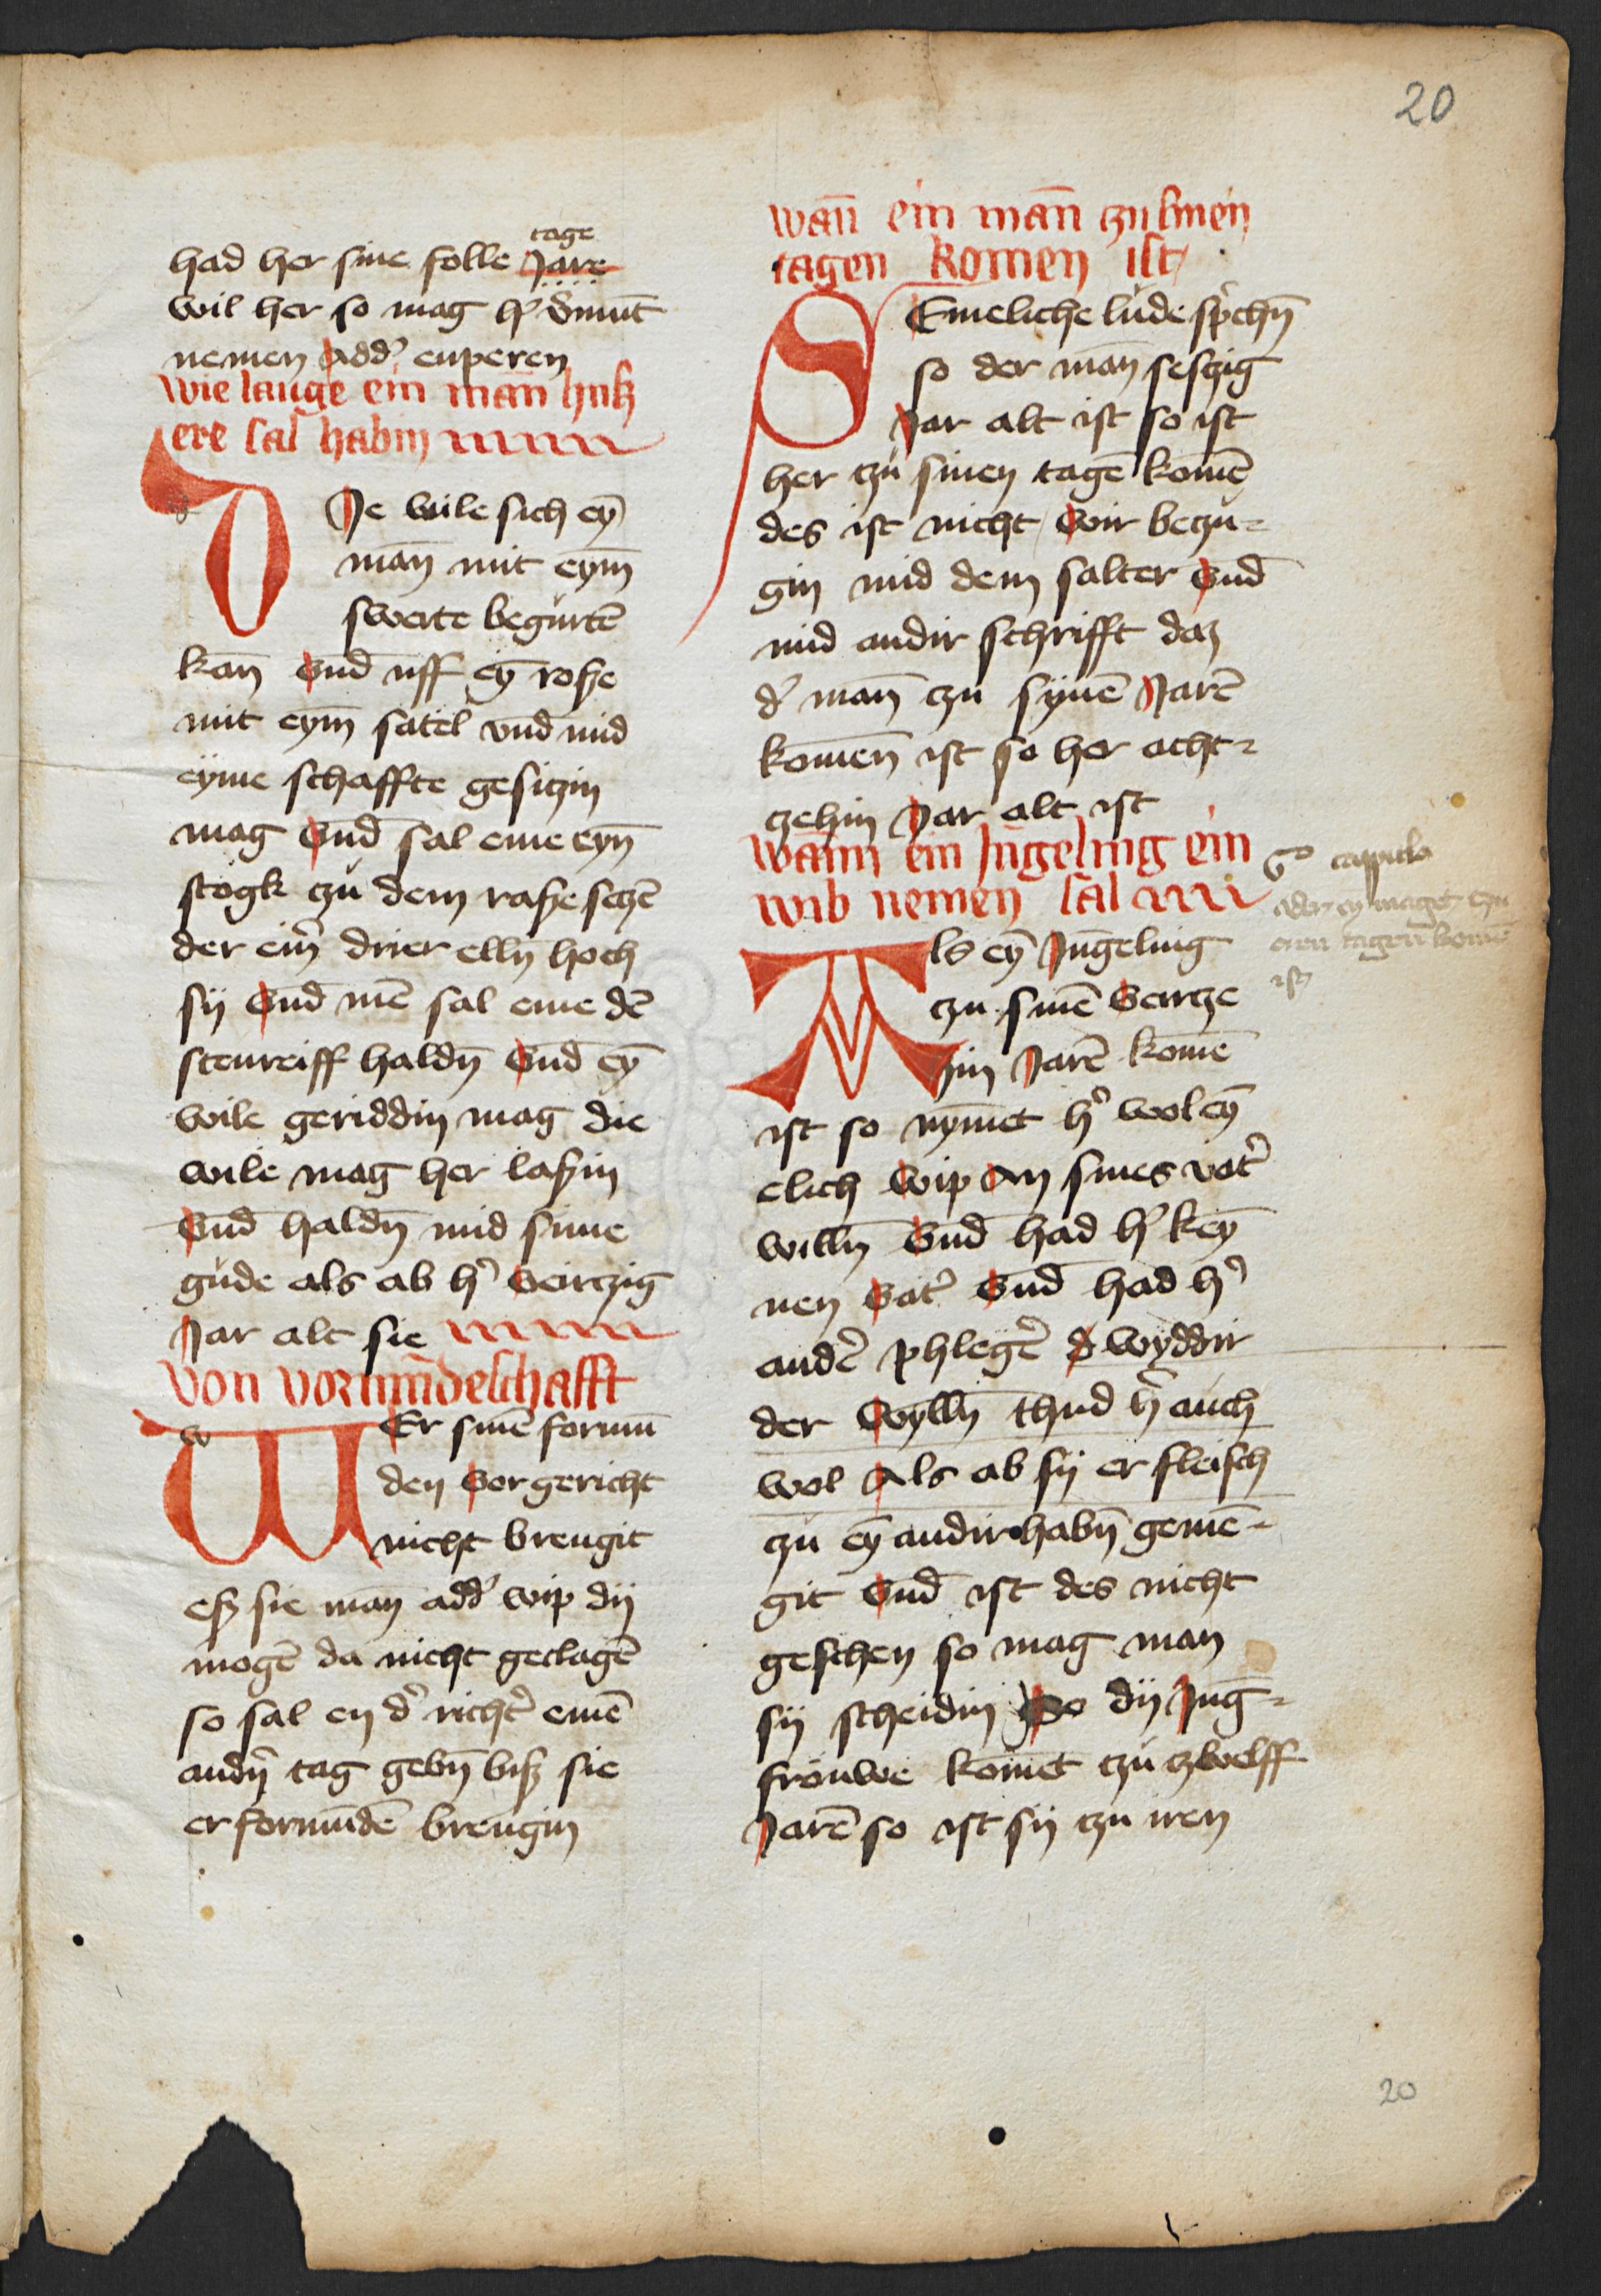 20
tage
had her sine folle Jare
wil her so mag h' v̓munt
nemen add' enperen
wie lange ein man husz
ere sal habin
DJe wile sich ey̅
man̅ mit eym̅
swerte begurte̅
kan̅ vnd̅ uff ey̅ rosze
mit eym̅ satel vnd̅ mid
eyme schaffte gesitzin
mag vnd̅ sal eme eyn̅
stogk czu dem rosze secze̅
der ein' drier elln̅ hoch
sij vnd̅ me̅ sal eme de̅
stenreiff haldn̅ vnd̅ ey̅
wile geriddin mag die
wile mag her laszin
vnd̅ haldn̅ mid sime
gude als ab h' veirczig
Jar alt sie
von vormu̅deschafft
w
WEr sine̅ formu̅
den vor gericht
nicht brengit
esz sie man̅ add' wip dij
moge̅ da nicht geclage̅
so sal en d' richt' eine̅
andn̅ tag gebn̅ bisz sie
er formu̅de̅ brengin
wan̅ ein man̅ zu sinen
tagen komen ist
SEmeliche lude sp̓chn̅
so der man̅ seszig
Jar alt ist so ist
her czu sinen tage̅ kome̅
des ist nicht wir beczu-
gin mid dem salter vnd̅
mid andir schrifft daz
d' man̅ czu syne̅ Jare̅
komen̅ ist so her acht-
zehin Jar alt ist
wann ein Jungeling ein
wib nemen sal
capitlo
ader ey maget czu
eren tagen kome̅
ist
Als ey̅ Jungeling
czu sine̅ vercze
hin Jare̅ kome̅
ist so nym̅et h' wol ey̅
elich wip an sines vat'
willn̅ vnd̅ had h' key̅
nen vat' vnd̅ had h'
ande̅ phleg' d' wyddir
der wylln̅ thud h' auch
wol als ab sij er fleisch
czu ey̅ andir habn̅ geme̅-
git vnd̅ ist des nicht
geschen so mag man
sij scheidin So dij Jung-
frouwe kom̅et czu czwelff
Jare̅ so ist sij czu iren
20